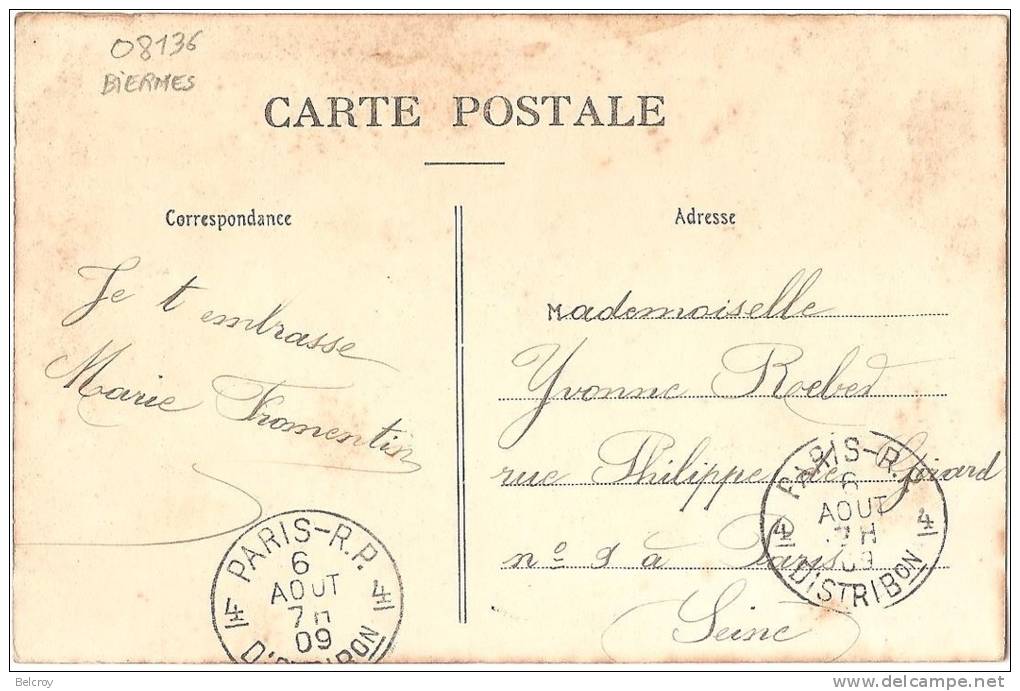 08136
BIERMES
CARTE POSTALE
Correspondance
Je t embrasse
Marie Fromentin
Adresse
Mademoiselle
Yvonne Roeber
rue Philippe de Girard
n° 9 à Paris
Seine
PARIS-R.P.
6
AOUT
7H
09
4 4
DISTRIBON
PARIS-R.P.
6
AOUT
7H
09
4 4
DISTRIBON
Belcroy
www.delcampe.net